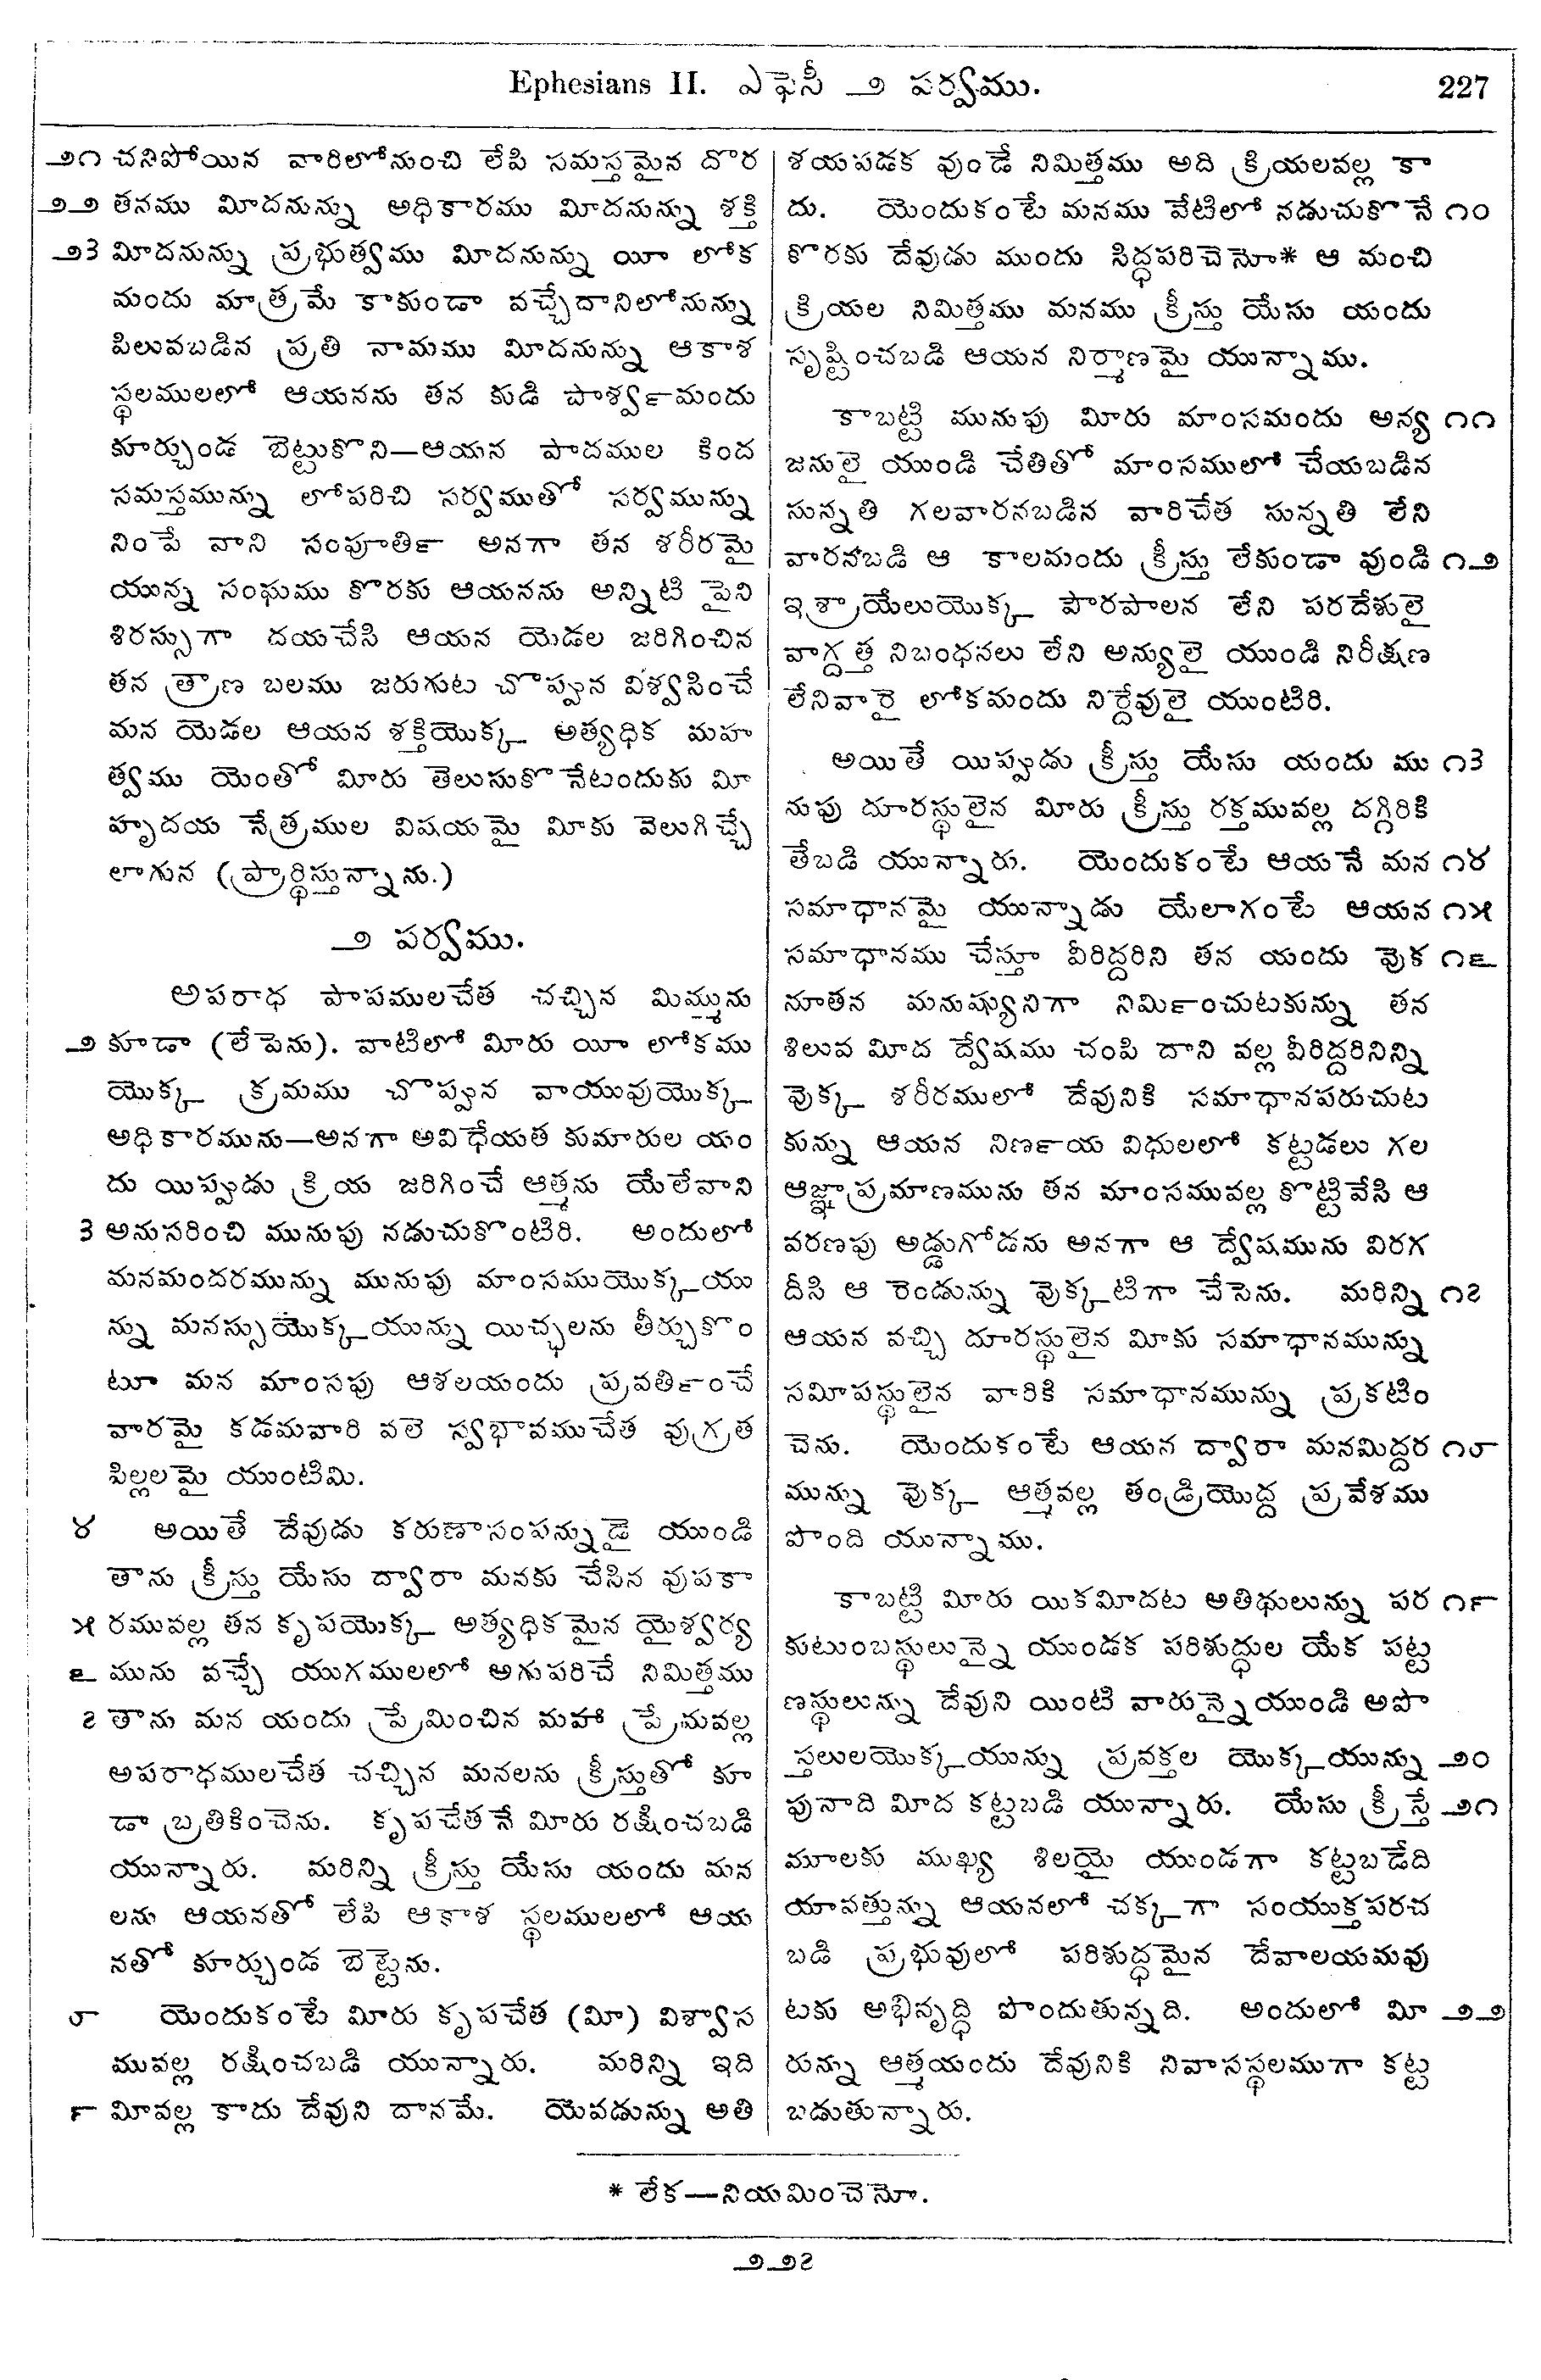 Ephesians II. ఎఫెసీ ౨ పర్వము. 227
౨౧ చనిపోయిన వారిలోనుంచి లేపి సమస్తమైన దొర
౨౨ తనము మీదనున్ను అధికారము మీదనున్ను శక్తి
౨౩ మీదనున్ను ప్రభుత్వము మీదనున్ను యీ లోక
మందు మాత్రమే కాకుండా వచ్చేదానిలోనున్ను
పిలువబడిన ప్రతి నామము మీదనున్ను ఆకాశ
స్థలములలో ఆయనను తన కుడి పాశ్వ౯మందు
కూర్చుండ బెట్టుకొని—ఆయన పాదముల కింద
సమస్తమున్ను లోపరిచి సర్వముతో సర్వమున్ను
నింపే వాని సంపూతి౯ అనగా తన శరీరమై
యున్న సంఘము కొరకు ఆయనను అన్నిటి పైని
శిరస్సుగా దయచేసి ఆయన యెడల జరిగించిన
తన త్రాణ బలము జరుగుట చొప్పున విశ్వసించే
మన యెడల ఆయన శక్తియొక్క అత్యధిక మహ
త్వము యెంతో మీరు తెలుసుకొనేటందుకు మీ
హృదయ నేత్రముల విషయమై మీకు వెలుగిచ్చే
లాగున (ప్రార్థిస్తున్నాను.)
౨ పర్వము.
అపరాధ పాపములచేత చచ్చిన మిమ్మును
౨ కూడా (లేపెను). వాటిలో మీరు యీ లోకము
యొక్క క్రమము చొప్పున వాయువుయొక్క
అధికారమును—అనగా అవిధేయత కుమారుల యం
దు యిప్పుడు క్రియ జరిగించే ఆత్మను యేలేవాని
౩ అనుసరించి మునుపు నడుచుకొంటిరి. అందులో
మనమందరమున్ను మునుపు మాంసముయొక్కయు
న్ను మనస్సుయొక్కయున్ను యిచ్ఛలను తీర్చుకొం
టూ మన మాంసపు ఆశలయందు ప్రవతి౯ంచే
వారమై కడమవారి వలె స్వభావముచేత వుగ్రత
పిల్లలమై యుంటిమి.
౪ అయితే దేవుడు కరుణాసంపన్నుడై యుండి
తాను క్రీస్తు యేసు ద్వారా మనకు చేసిన వుపకా
౫ రమువల్ల తన కృపయొక్క అత్యధికమైన యైశ్వర్య
౬ మును వచ్చే యుగములలో అగుపరిచే నిమిత్తము
౭ తాను మన యందు ప్రేమించిన మహా ప్రేమవల్ల
అపరాధములచేత చచ్చిన మనలను క్రీస్తుతో కూ
డా బ్రతికించెను. కృపచేతనే మీరు రక్షించబడి
యున్నారు. మరిన్ని క్రీస్తు యేసు యందు మన
లను ఆయనతో లేపి ఆకాశ స్థలములలో ఆయ
నతో కూర్చుండ బెట్టెను.
౮ యెందుకంటే మీరు కృపచేత (మీ) విశ్వాస
మువల్ల రక్షించబడి యున్నారు. మరిన్ని ఇది
౯ మీవల్ల కాదు దేవుని దానమే. యెవడున్ను అతి
శయపడక వుండే నిమిత్తము అది క్రియలవల్ల కా
దు. యెందుకంటే మనము వేటిలో నడుచుకొనే ౧౦
కొరకు దేవుడు ముందు సిద్ధపరిచెనో* ఆ మంచి
క్రియల నిమిత్తము మనము క్రీస్తు యేసు యందు
సృష్టించబడి ఆయన నిర్మాణమై యున్నాము.
కాబట్టి మునుపు మీరు మాంసమందు అన్య ౧౧
జనులై యుండి చేతితో మాంసములో చేయబడిన
సున్నతి గలవారనబడిన వారిచేత సున్నతి లేని
వారనబడి ఆ కాలమందు క్రీస్తు లేకుండా వుండి ౧౨
ఇశ్రాయేలుయొక్క పౌరపాలన లేని పరదేశులై
వాగ్దత్త నిబంధనలు లేని అన్యులై యుండి నిరీక్షణ
లేనివారై లోకమందు నిర్దేవులై యుంటిరి.
అయితే యిప్పుడు క్రీస్తు యేసు యందు ము ౧౩
నుపు దూరస్థులైన మీరు క్రీస్తు రక్తమువల్ల దగ్గిరికి
తేబడి యున్నారు. యెందుకంటే ఆయనే మన ౧౪
సమాధానమై యున్నాడు యేలాగంటే ఆయన ౧౫
సమాధానము చేస్తూ వీరిద్దరిని తన యందు వొక ౧౬
నూతన మనుష్యునిగా నిమి౯ంచుటకున్ను తన
శిలువ మీద ద్వేషము చంపి దాని వల్ల వీరిద్దరినిన్ని
వొక్క శరీరములో దేవునికి సమాధానపరుచుట
కున్ను ఆయన నిణ౯య విధులలో కట్టడలు గల
ఆజ్ఞాప్రమాణమును తన మాంసమువల్ల కొట్టివేసి ఆ
వరణపు అడ్డుగోడను అనగా ఆ ద్వేషమును విరగ
దీసి ఆ రెండున్ను వొక్కటిగా చేసెను. మరిన్ని ౧౭
ఆయన వచ్చి దూరస్థులైన మీకు సమాధానమున్ను
సమీపస్థులైన వారికి సమాధానమున్ను ప్రకటిం
చెను. యెందుకంటే ఆయన ద్వారా మనమిద్దర ౧౮
మున్ను వొక్క ఆత్మవల్ల తండ్రియొద్ద ప్రవేశము
పొంది యున్నాము.
కాబట్టి మీరు యికమీదట అతిథులున్ను పర ౧౯
కుటుంబస్థులున్నై యుండక పరిశుద్ధుల యేక పట్ట
ణస్థులున్ను దేవుని యింటి వారున్నైయుండి అపొ
స్తలులయొక్కయున్ను ప్రవక్తల యొక్కయున్ను ౨౦
పునాది మీద కట్టబడి యున్నారు. యేసు క్రీస్తే ౨౧
మూలకు ముఖ్య శిలయై యుండగా కట్టబడేది
యావత్తున్ను ఆయనలో చక్కగా సంయుక్తపరచ
బడి ప్రభువులో పరిశుద్ధమైన దేవాలయమవు
టకు అభివృద్ధి పొందుతున్నది. అందులో మీ ౨౨
రున్ను ఆత్మయందు దేవునికి నివాసస్థలముగా కట్ట
బడుతున్నారు.
* లేక—నియమించెనో.
౨౨౭